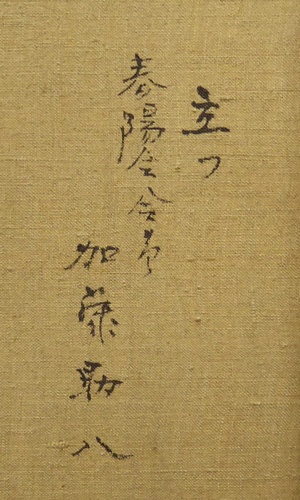 立つ
春陽会会員
加藤勘八